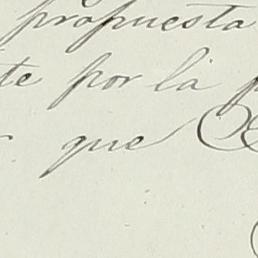 propuesta
te por la
que